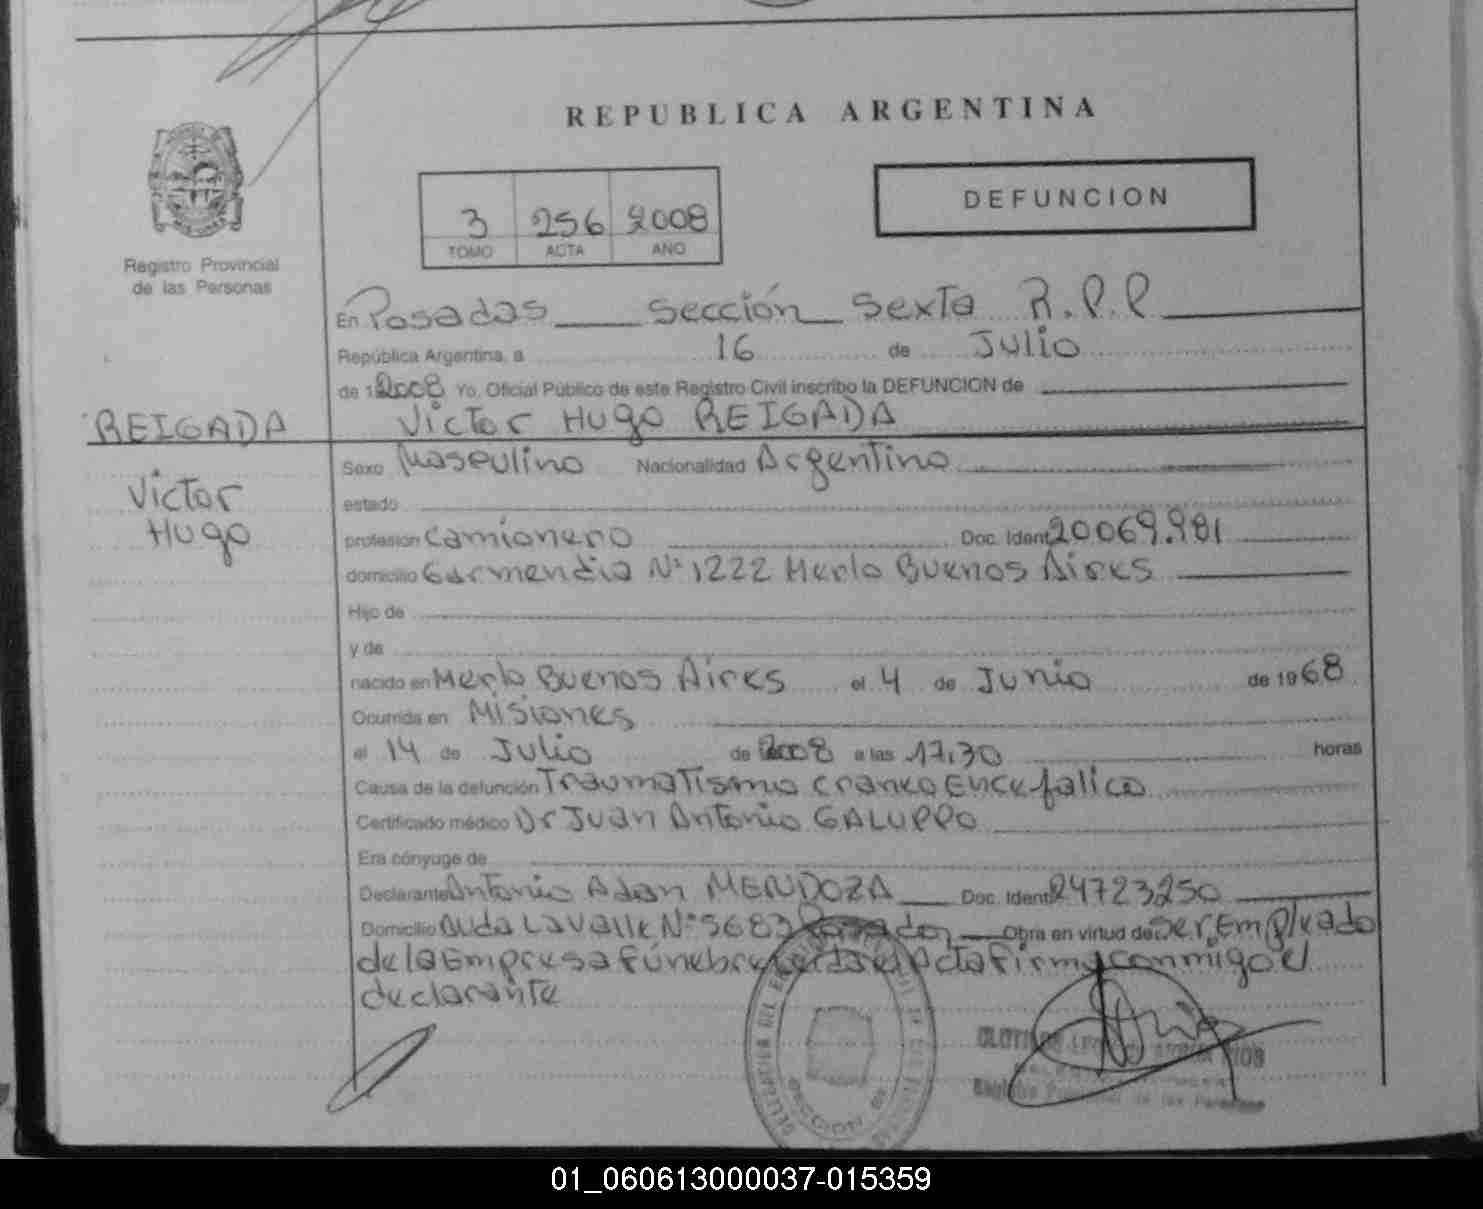 REPUBLICA ARGENTINA
DEFUNCION
3 256 2008
TOMO ACTA AÑO
Registro Provincial
de las Personas
En Posadas sección sexta R.P.P
República Argentina, a 16 de Julio
de 2008 Yo, Oficial Público de este Registro Civil inscribo la DEFUNCION de
REIGADA
Victor Hugo REIGADA
Victor
Hugo
Sexo Masculino Nacionalidad Argentino
estado
profesión camionero Doc. Ident 20069.981
domicilio Garmendia Nº 1222 Merlo Buenos Aires
Hijo de
y de
nacido en Merlo Buenos Aires el 4 de Junio de 1968
Ocurrida en Misiones
el 14 de Julio de 2008 a las 17,30 horas
Causa de la defunción Traumatismo craneo Encefalico
Certificado médico Dr Juan Antonio GALUPPO
Era cónyuge de
Declarante Antonio Adan MENDOZA Doc. Ident 24723250
Domicilio Avda Lavalle Nº 5683 Posadas Obra en virtud de ser Empleado
de la Empresa fúnebre Acta firma conmigo el
declarante
Registro Provincial de las Personas
01_060613000037-015359